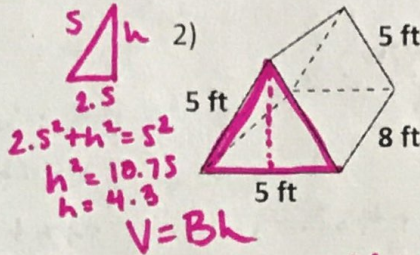 5
h
2)
2.5
5 ft
5 ft
2.5²+h²=5²
h²=18.75
8 ft
h=4.3
5 ft
V=Bh